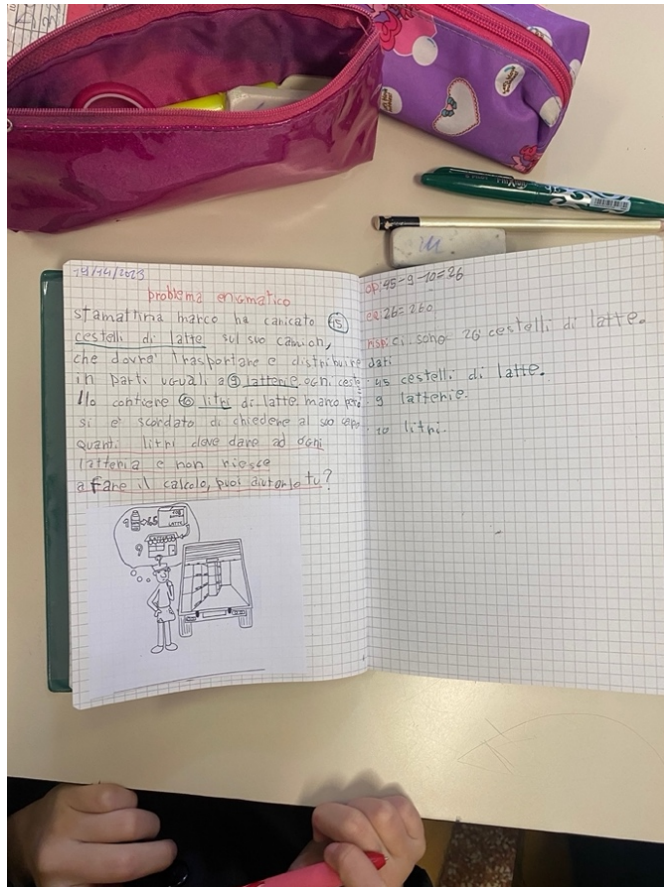 14/11/2023
problema enigmatico
stamattina marco ha caricato 45
cestelli di latte sul suo camion,
che dovrà trasportare e distribuire
in parti uguali a 9 latterie. ogni ceste
llo contiene 10 litri di latte. marco però
si è scordato di chiedere al suo capo
quanti litri deve dare ad ogni
latteria e non riesce
a fare il calcolo, puoi aiutarlo tu?
9
LATTE
op: 45-9-10=26
26=260
risp: ci sono 26 cestelli di latte.
dati
45 cestelli di latte.
9 latterie.
10 litri.